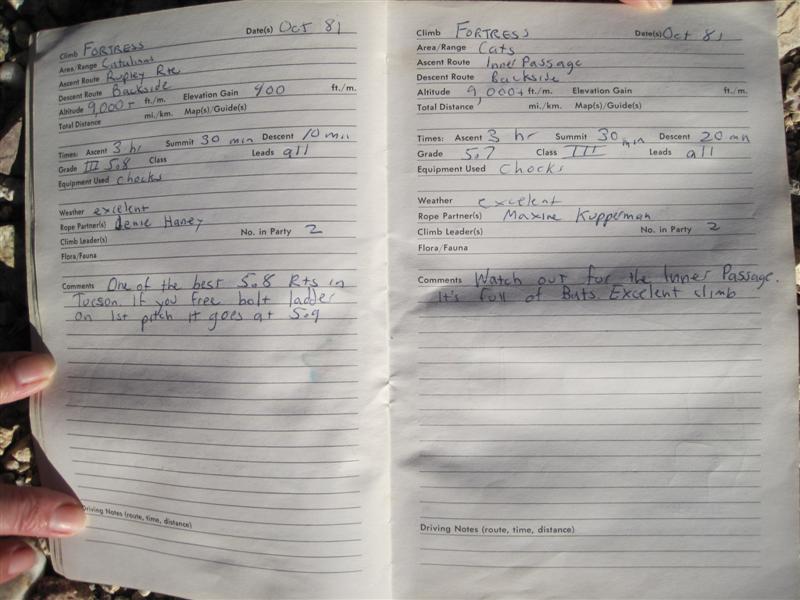 Date(s) Oct 81
Climb FORTRESS
Area/Range Catalinas
Ascent Route Rupley Rte
Descent Route Backside
Altitude 9,000+ ft./m. Elevation Gain 900 ft./m.
Total Distance mi./km. Map(s)/Guide(s)
Times: Ascent 3 hr Summit 30 min Descent 10 min
Grade III 5.8 Class Leads all
Equipment Used chocks
Weather excelent
Rope Partner(s) Haney
Climb Leader(s) No. in Party 2
Flora/Fauna
Comments One of the best 5.8 Rts in
Tucson. If you free bolt ladder
on 1st pitch it goes at 5.9
Driving Notes (route, time, distance)
Climb FORTRESS Date(s) Oct 81
Area/Range Cats
Ascent Route Inner Passage
Descent Route Backside
Altitude 9,000+ ft./m. Elevation Gain ft./m.
Total Distance mi./km. Map(s)/Guide(s)
Times: Ascent 3 hr Summit 30 min Descent 20 min
Grade 5.7 Class III Leads all
Equipment Used Chocks
Weather excelent
Rope Partner(s) Maxine Kupperman
Climb Leader(s) No. in Party 2
Flora/Fauna
Comments Watch out for the Inner Passage.
It's full of Bats. Excelent climb
Driving Notes (route, time, distance)